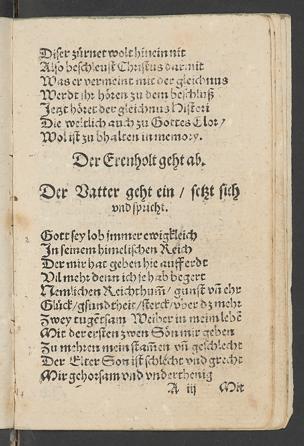 Diser zürnet wolt hinein nit
Also beschleust Christus darmit
Was er vermeint mit der gleichnus
Werdt jhr hören zu dem beschluß
Jetzt höret der gleichnus Histori
Die weltlich auch zu Gottes Glor/
Wol ist zu bhalten in memory.
Der Erenholt geht ab.
Der Vatter geht ein / setzt sich
vnd spricht.
Gott sey lob jmmer ewigkleich
In seinem himelischen Reich
Der mir hat geben hie auff erdt
Vil mehr denn ich je hab begert
Nemlichen Reichthum̃/ gunst vn̄ ehr
Glück/ gsundtheit/ sterck/ vber dz mehr
Zwey tugētsam Weiber in meim lebē
Mit der ersten zwen Sön mir geben
Zu mehren mein stam̄en vn̄ geschlecht
Der Elter Son ist schlecht vnd grecht
Mir gehorsam vnd vnderthenig
A iij Mit